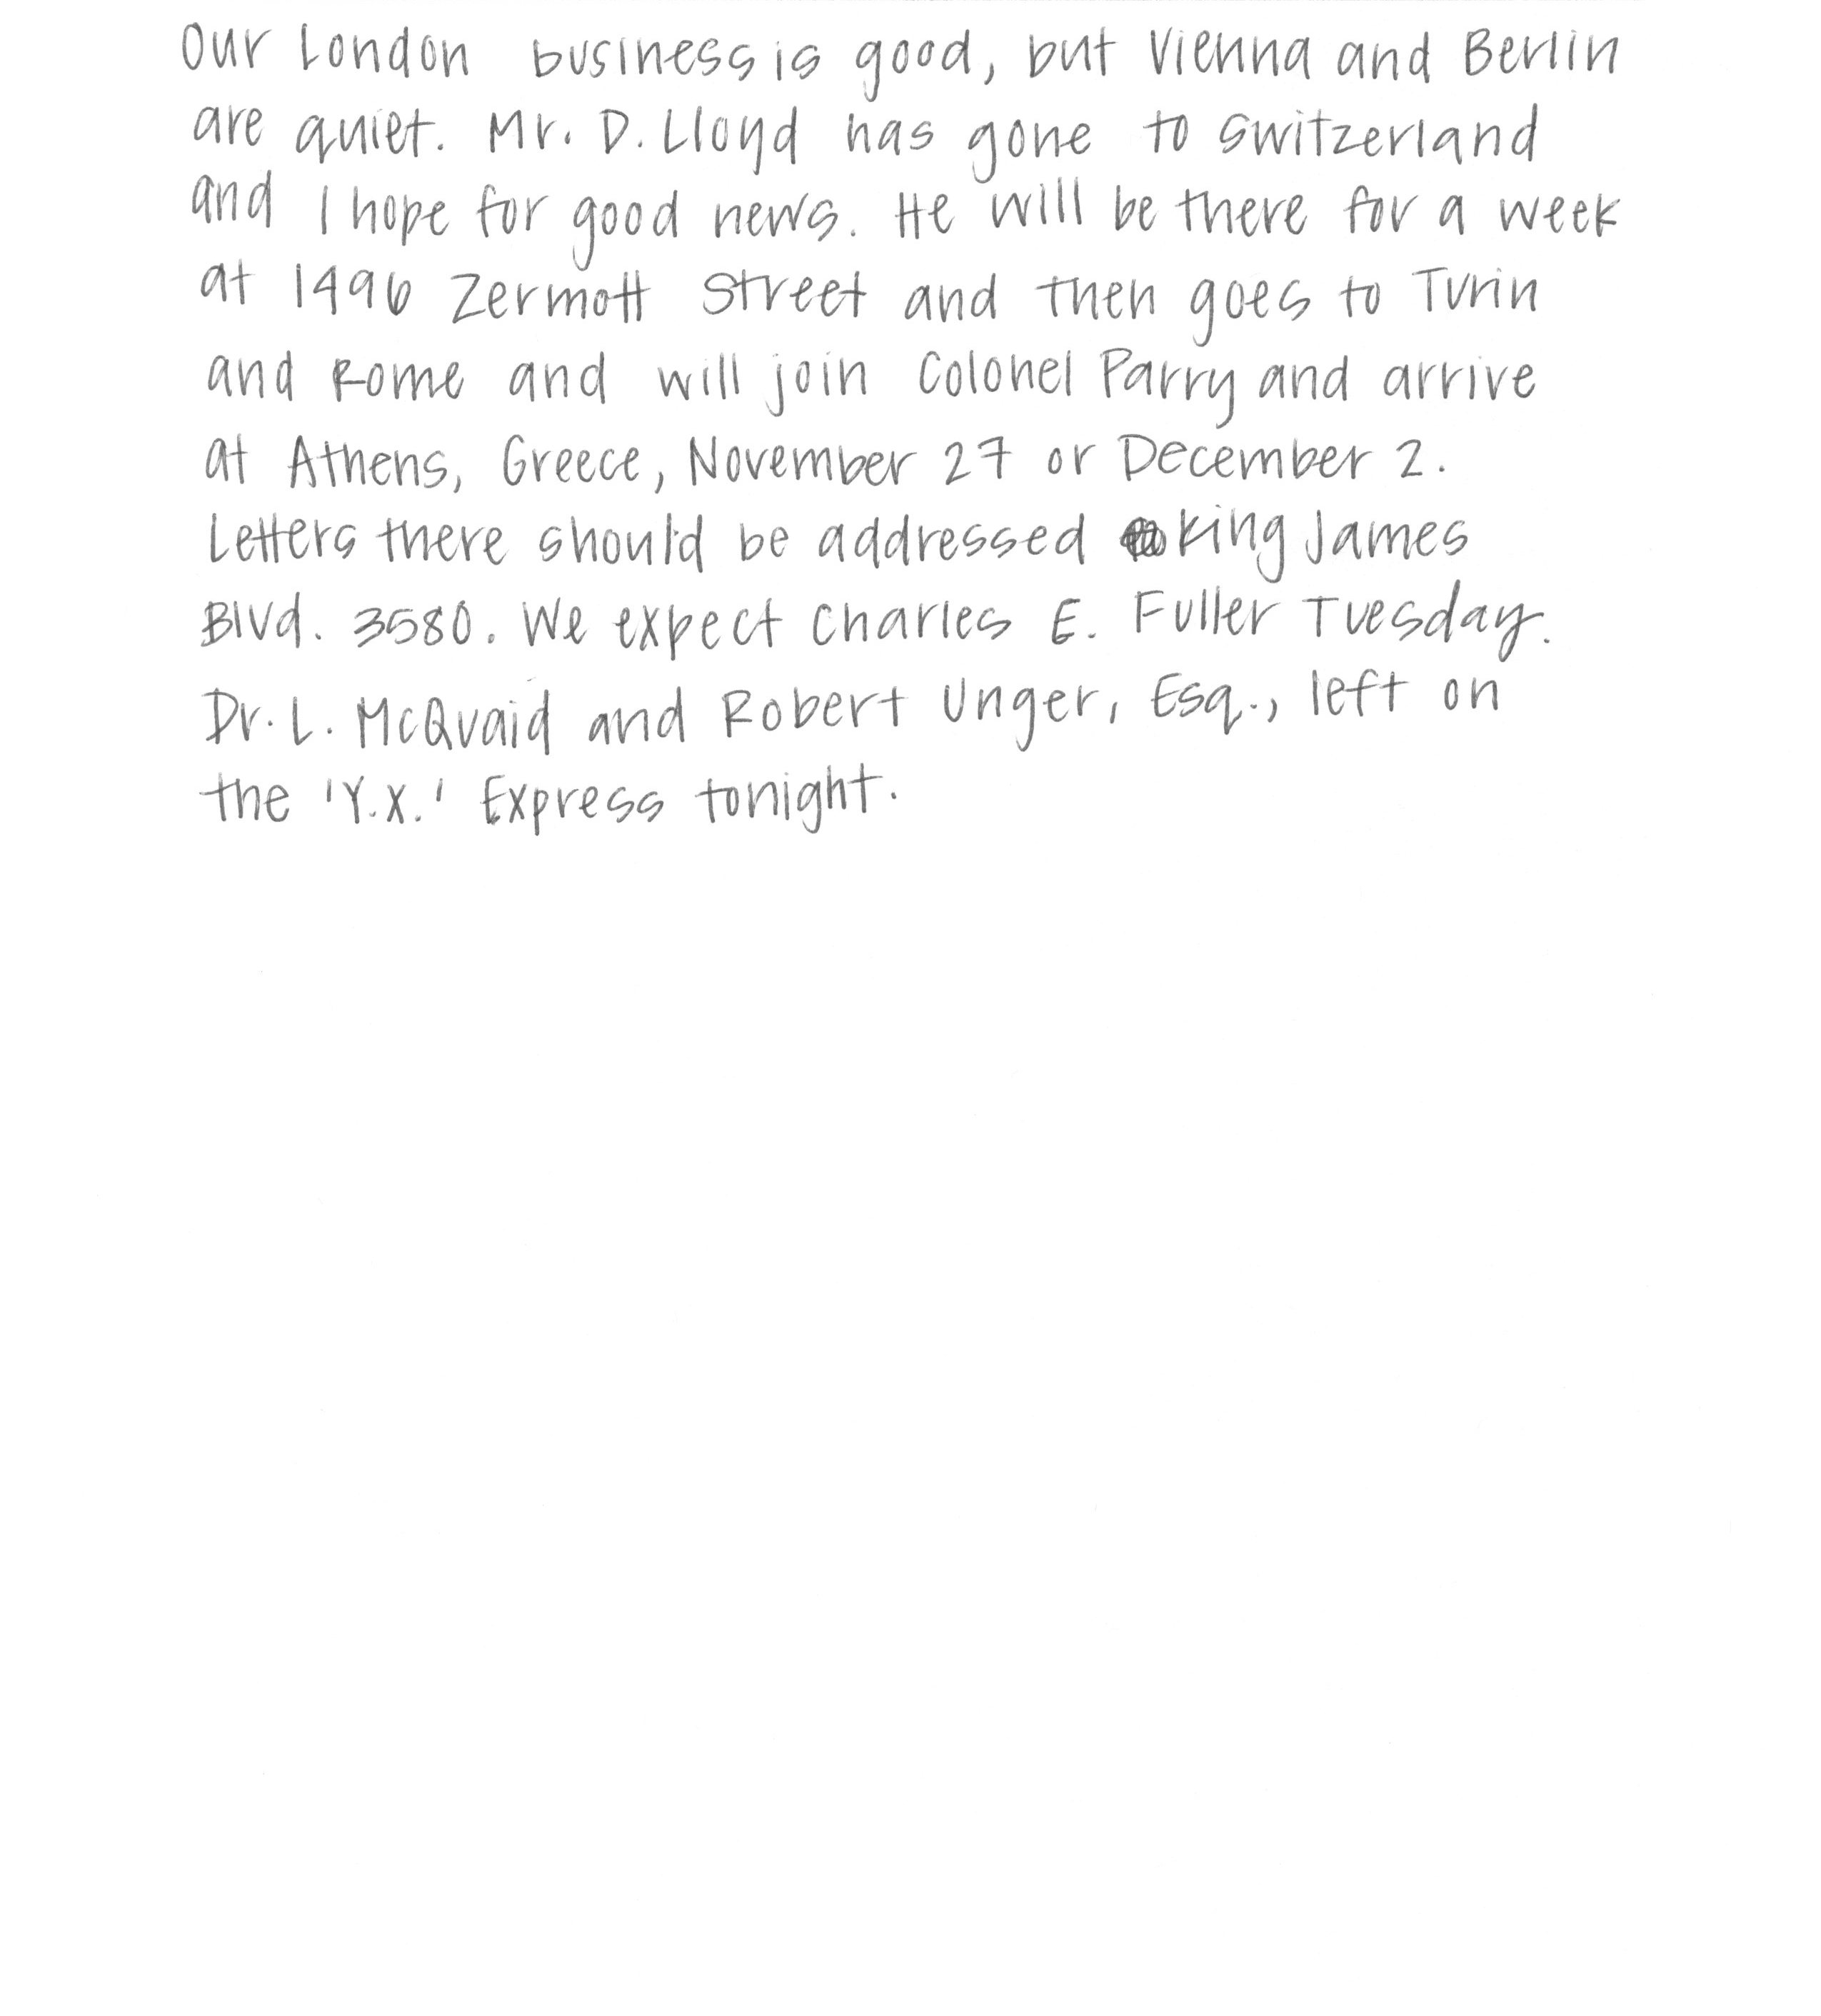 Our London business is good, but Vienna and Berlin
are quiet. Mr. D. Lloyd has gone to Switzerland
and I hope for good news. He will be there for a week
at 1496 Zermott Street and then goes to Turin
and Rome and will join Colonel Parry and arrive
at Athens, Greece, November 27 or December 2.
Letters there should be addressed King James
Blvd. 3580. We expect Charles E. Fuller Tuesday.
Dr. L. McQuaid and Robert Unger, Esq., left on
the 'Y.X.' Express tonight.